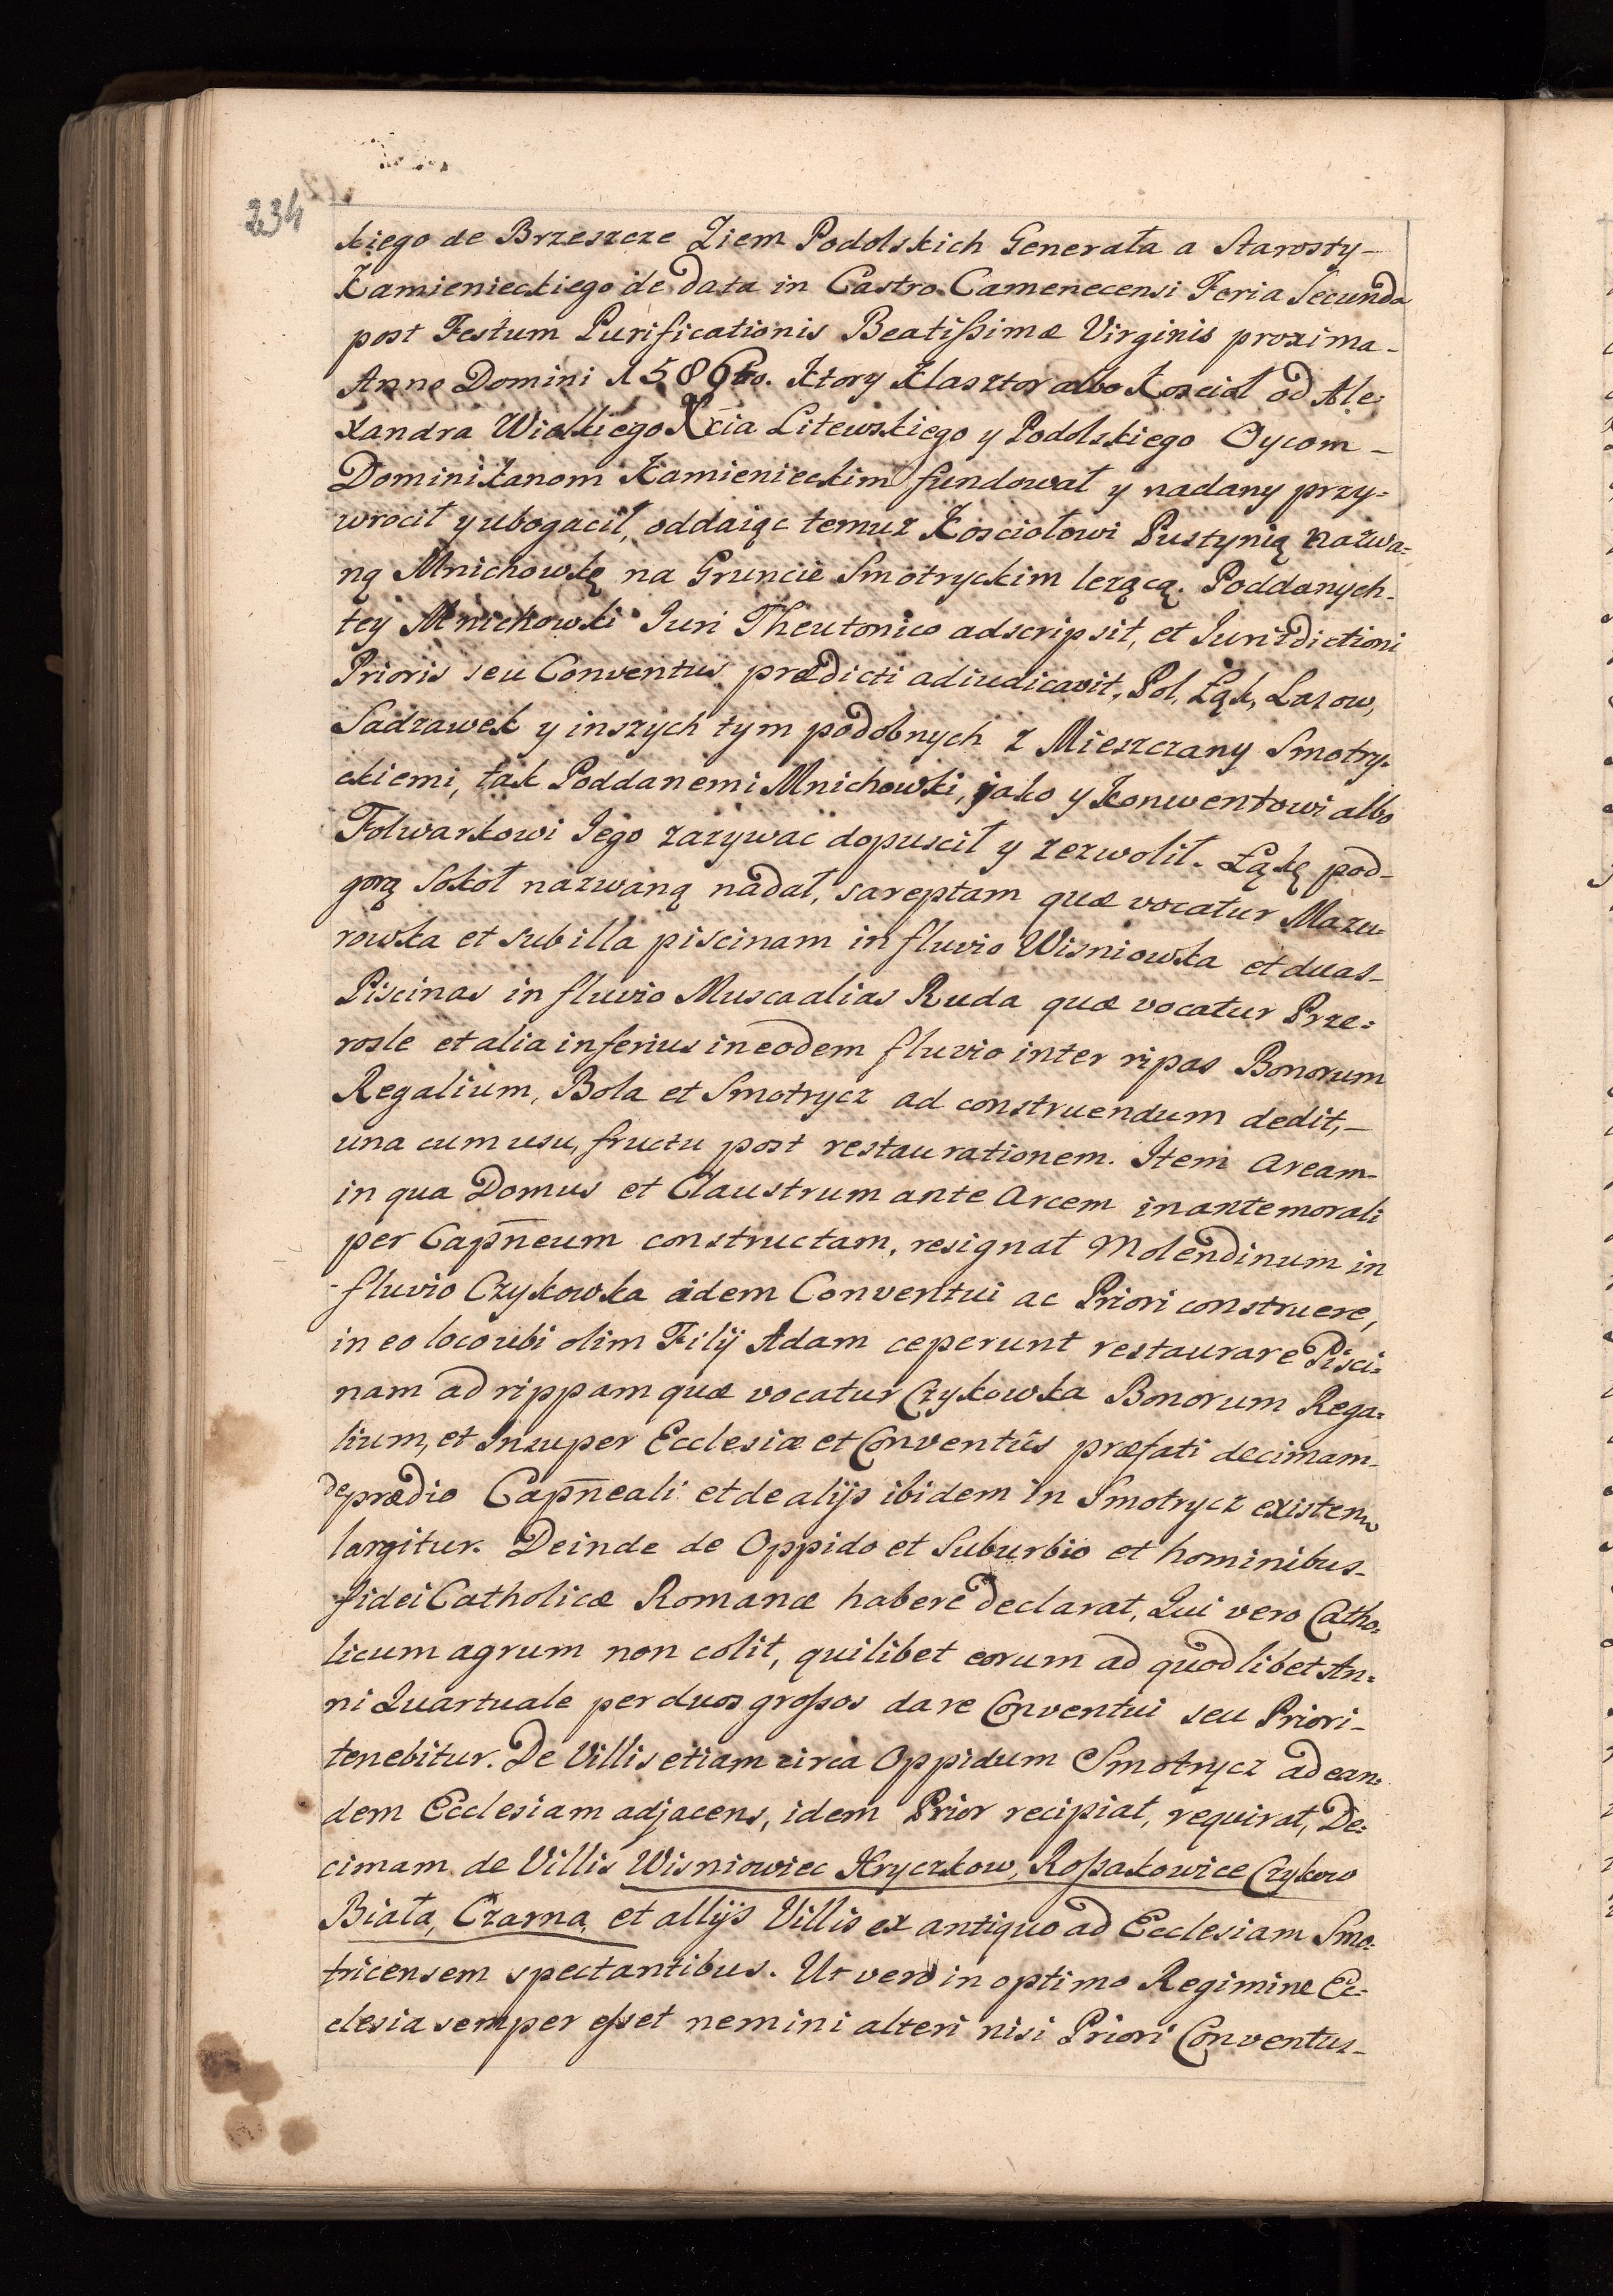 234
kiego de Brzeszcze Ziem Podolskich Generała a Starosty-
Kamienieckiego de data in Castro Camenecensi Feria Secunda
post Festum Purificationis Beatißimæ Virginis proxima-
Anno Domini 1586to. Ktory Klasztor albo Kosciół od Ale:
xandra Wielkiego Xcia Litewskiego y Podolskiego Oycom-
Dominikanom Kamienieckim fundował y nadany przy=
wrocił y ubogacił, oddaiąc temuz Kosciołowi Pustynią nazwa=
ną Mnichowkę na Gruncie Smotryckim lezącą. Poddanych-
tey Mnichowki Juri Theutonico adscripsit, et Jurizdictioni
Prioris seu Conventus prædicti adiudicavit, Pol, Łąk, Lazow,
Sadzawek y inszych tym podobnych z Mieszczany Smotry-
ckiemi, tak Poddanemi Mnichowki, jako y Konwentowi albo
Folwarkowi Jego zazywac dopuscił y zezwolił. Łąkę pod-
gorą Sokoł nazwaną nadał, sareptam quæ vocatur Mazu=
rowka et sub illa piscinam in fluvio Wisniowka et duas-
Piscinas in fluvio Musca alias Ruda quæ vocatur Prze=
rosle et alia inferius in eodem fluvio inter ripas Bonorum
Regalium, Bola et Smotrycz ad construendum dedit,-
una cum usu, fructu post restaurationem. Item Aream-
in qua Domus et Claustrum ante Arcem in antemorali
per Capn̄eum constructam, resignat Molendinum in
fluvio Czykowka eidem Conventui ac Priori construere,
in eo loco ubi olim Filij Adam ceperunt restaurare Pisci=
nam ad rippam quæ vocatur Czykowka Bonorum Rega=
lium, et Insuper Ecclesiæ et Conventûs præfati decimam-
de prædio Capn̄eali et de alijs ibidem in Smotrycz existen
largitur. Deinde de Oppido et Suburbio et hominibus-
fidei Catholicæ Romanæ habere declarat, Qui vero Catho=
licum agrum non colit, quilibet eorum ad quodlibet An=
ni Quartuale per duos großos dare Conventui seu Priori-
tenebitur. De Villis etiam circa Oppidum Smotrycz ad ean=
dem Ecclesiam adjacens, idem Prior recipiat, requirat, De=
cimam de Villis Wisniowiec Hryczkow, Roßakowice Czykowo
Biała, Czarna, et allijs Villis ex antiquo ad Ecclesiam Smo=
tricensem spectantibus. Ut vero in optimo Regimine Ec=
clesia semper eßet nemini alteri nisi Priori Conventus-